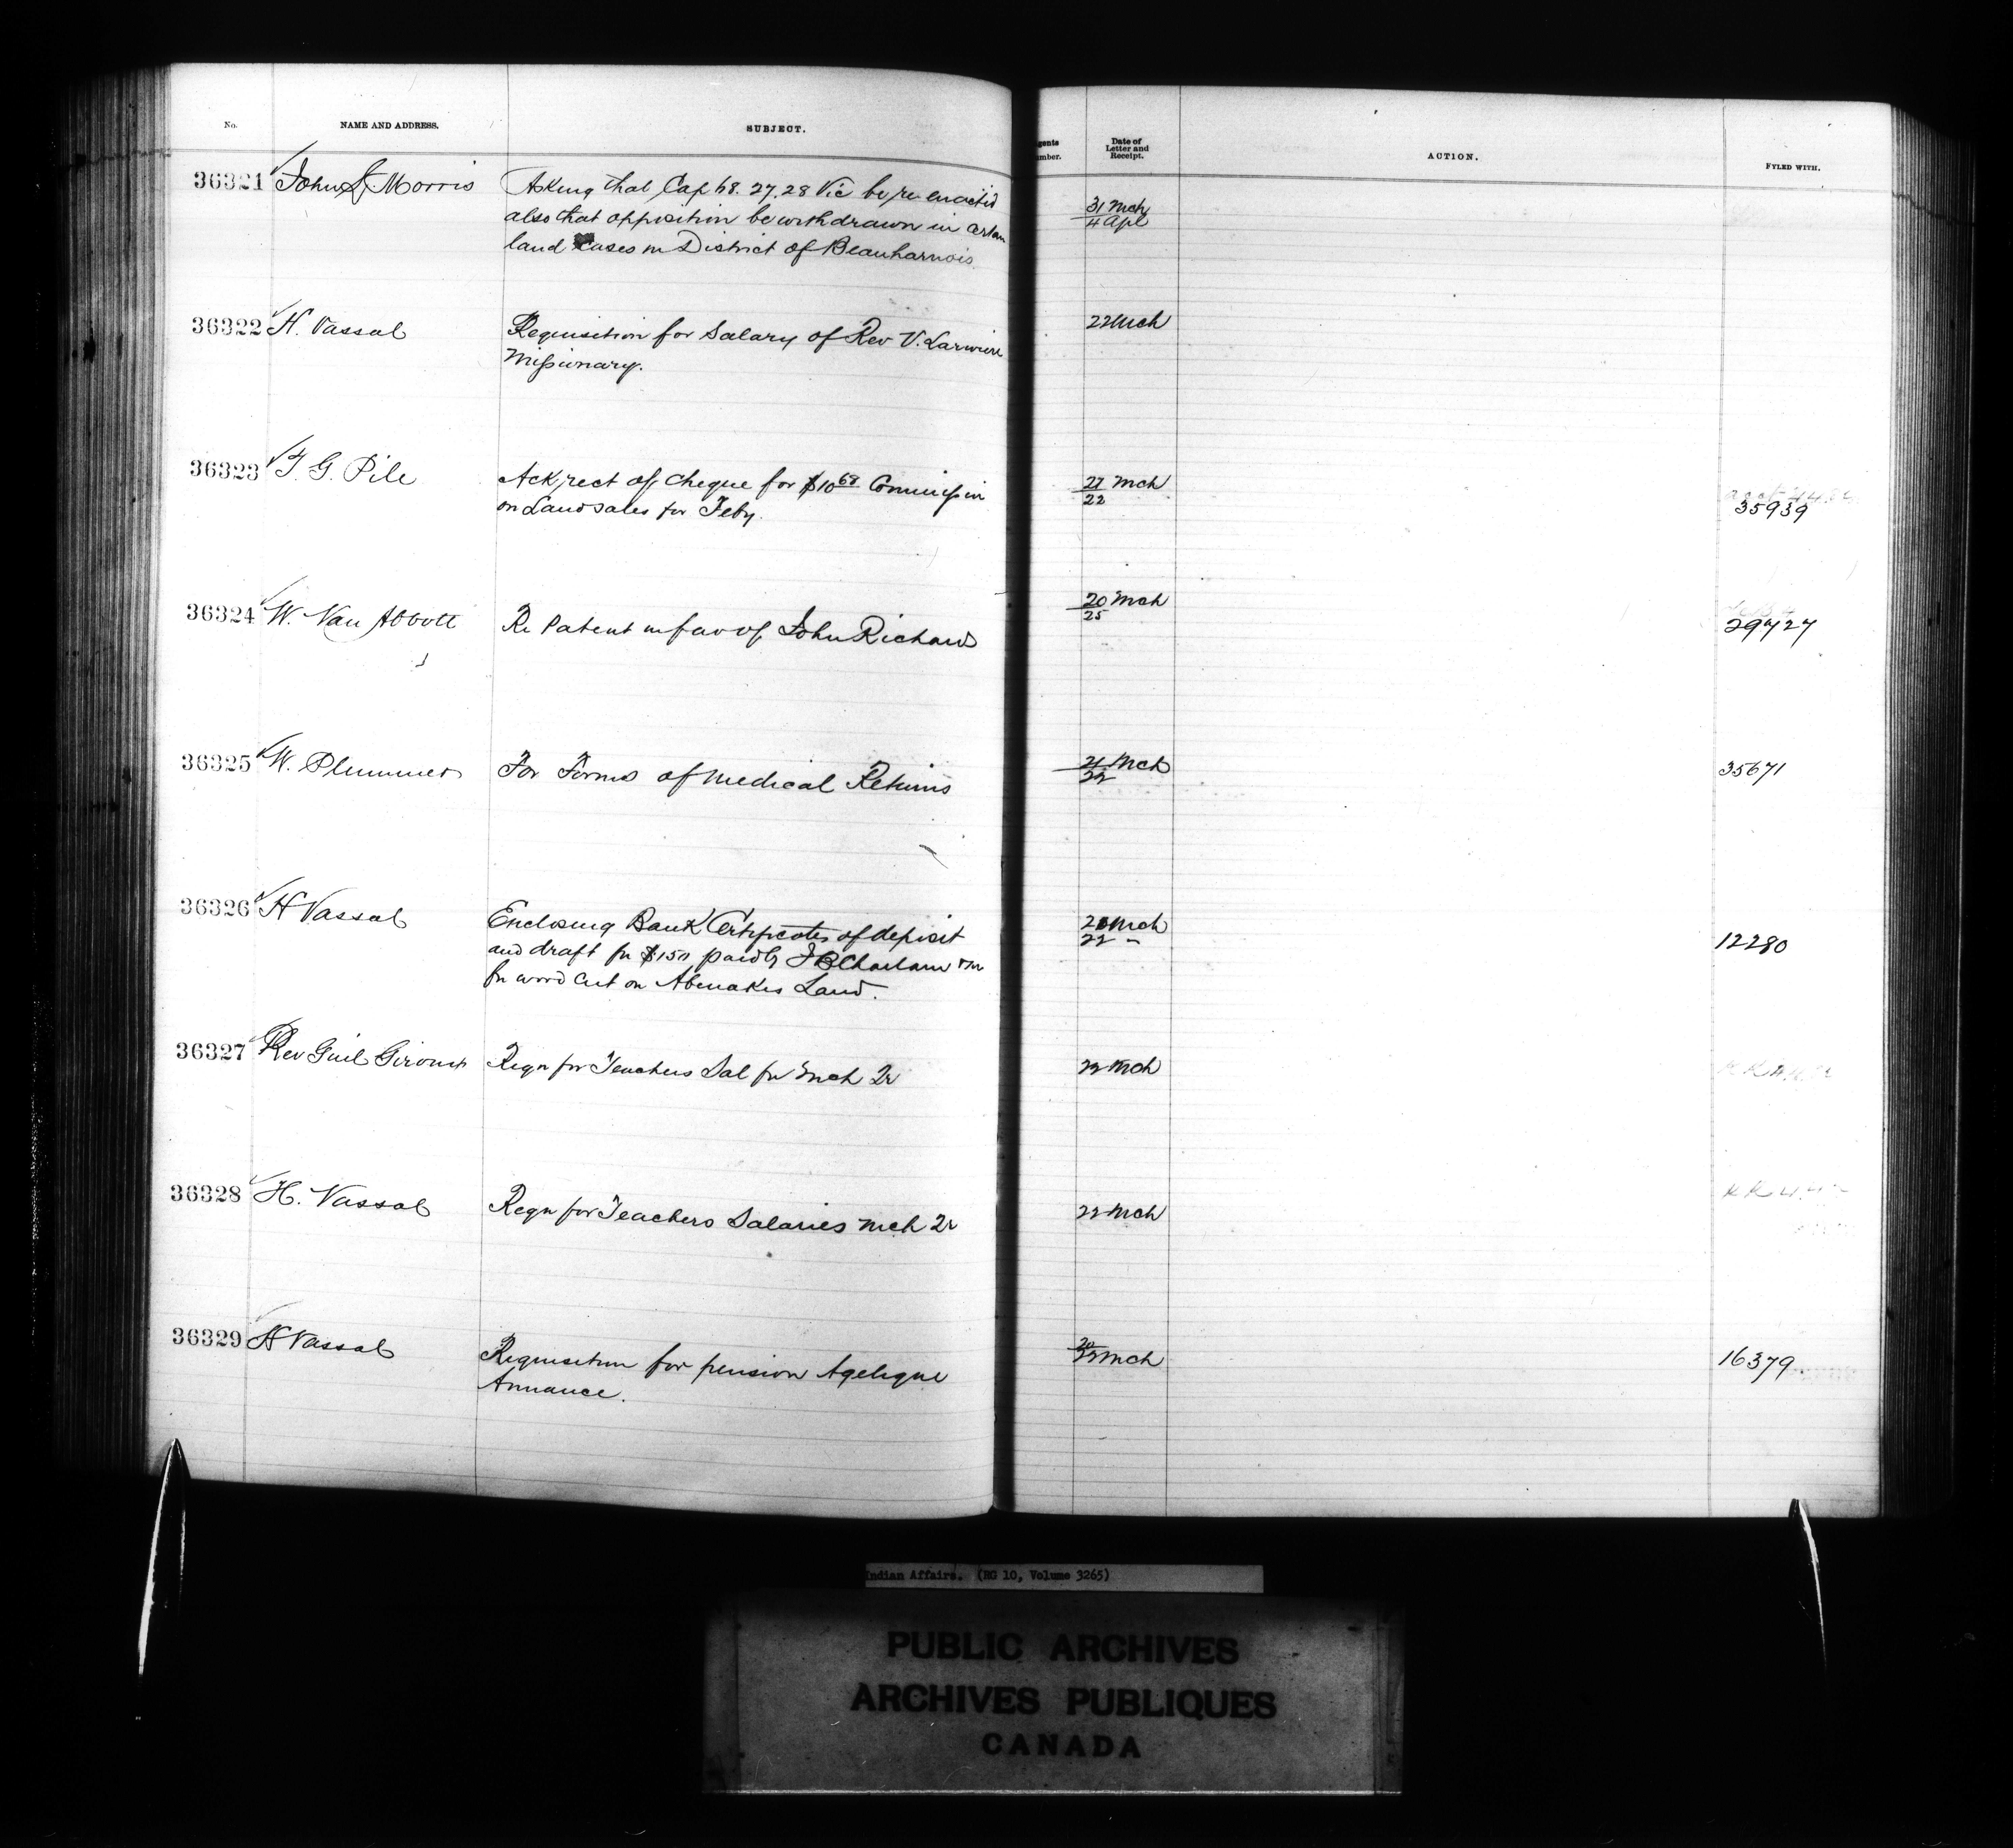 No. NAME AND ADDRESS. SUBJECT. gents umber. Date of Letter and Receipt. ACTION. FYLED WITH.
36321 John L. Morris Asking that Cap 68. 27.28 Vic be re-enacted 31 Mch
also that opposition be withdrawn in certain 4 Apl
land cases in District of Beauharnois.
36322 H. Vassal Requisition for Salary of Rev V. 22 Mch
Missionary.
36323 T. G. Pile Ack rect of cheque for $10 68 Commission 21 Mch
on Land sales for Feby. 22 35939
36324 W. Van Abbott Re Patent in fav of John Richard 20 Mch 29727
25
36325 W. Plummer For Forms of Medical Returns 21 Mch 35671
22
36326 H Vassal Enclosing Bank Certificates of deposit Mch
and draft for $150 paid by J B &
for wood cut on Abenakis Land. 22 12280
36327 Rev Guil Giroux Reqn for Teachers Sal for Mch Qr 22 Mch
36328 H. Vassal Reqn for Teachers Salaries Mch Qr 22 Mch
36329 H Vassal Requisition for pension Agelique 22 Mch 16379
Annance.
Indian Affairs. (RG 10, Volume 3265)
PUBLIC ARCHIVES
ARCHIVES PUBLIQUES
CANADA